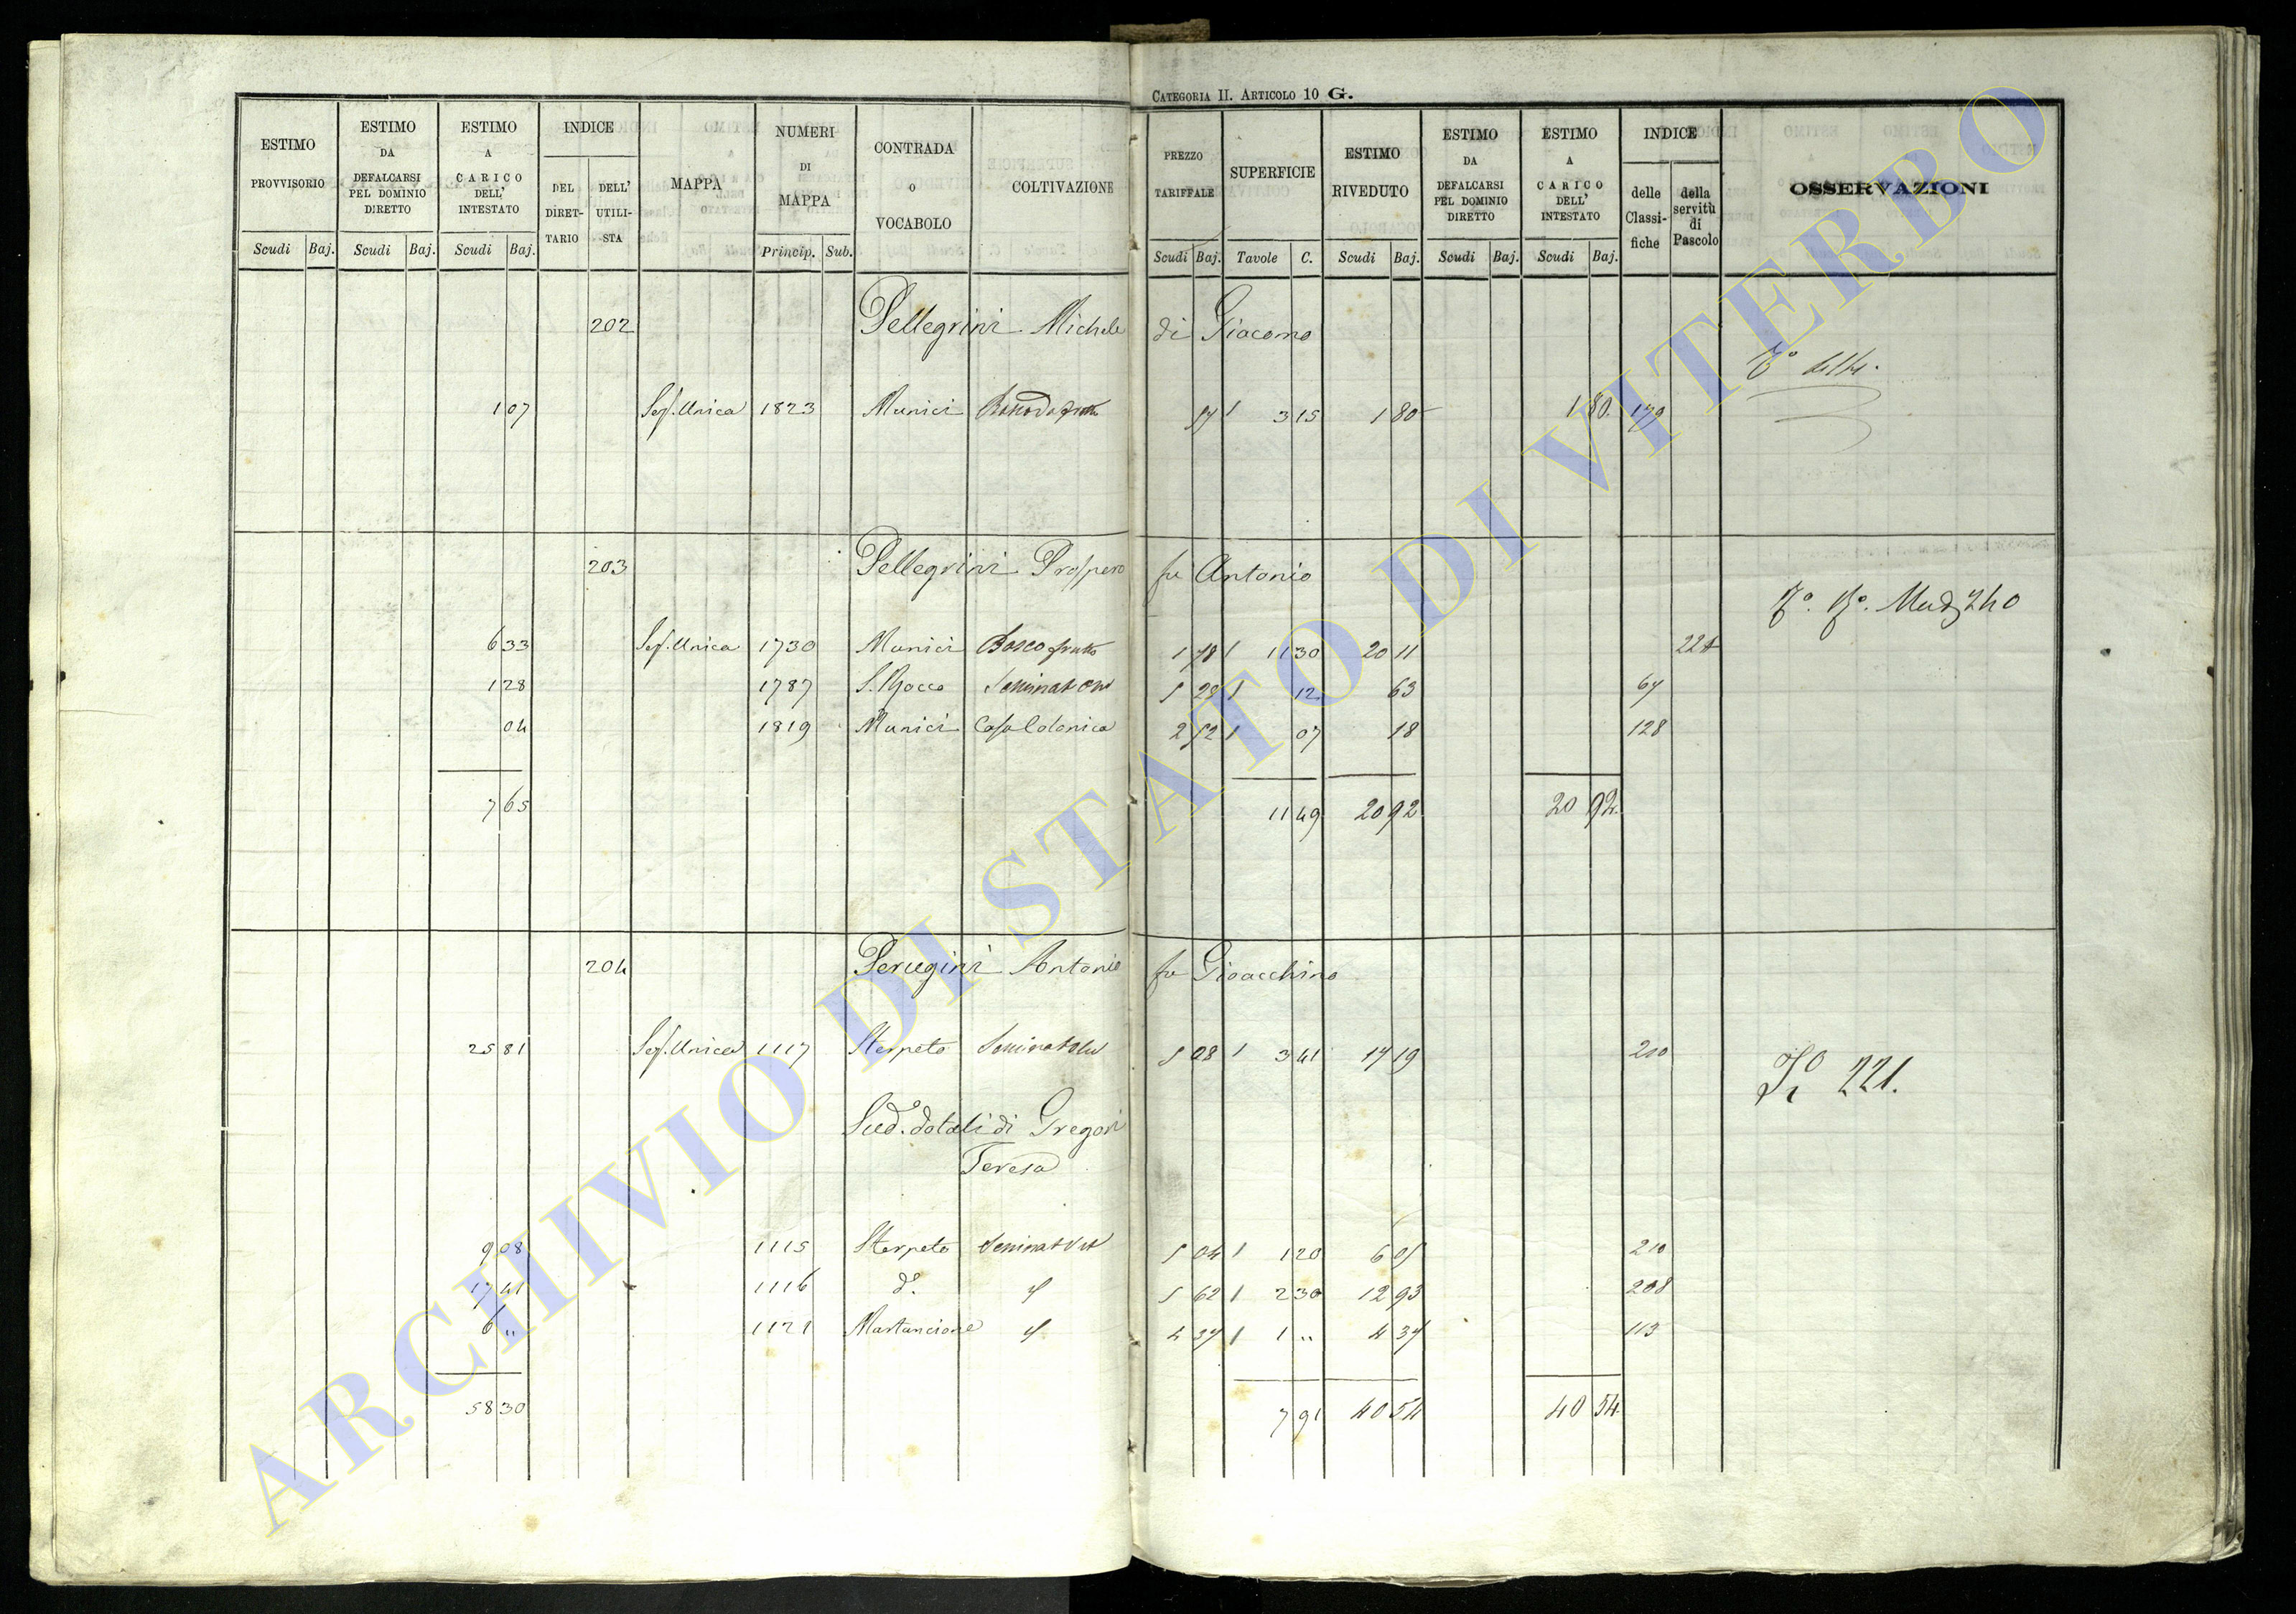 CATEGORIA II. ARTICOLO 10 G.
ESTIMO PROVVISORIO Scudi Baj. ESTIMO DA DEFALCARSI PEL DOMINIO DIRETTO Scudi Baj. ESTIMO A CARICO DELL' INTESTATO Scudi Baj. INDICE DEL DIRET-TARIO DELL' UTILI-STA MAPPA NUMERI DI MAPPA Princip. Sub. CONTRADA O VOCABOLO COLTIVAZIONE PREZZO TARIFFALE Scudi Baj. SUPERFICIE Tavole C. ESTIMO RIVEDUTO Scudi Baj. ESTIMO DA DEFALCARSI PEL DOMINIO DIRETTO Scudi Baj. ESTIMO A CARICO DELL' INTESTATO Scudi Baj. INDICE delle Classi-fiche della servitù di Pascolo OSSERVAZIONI
202 Pellegrini Michele di Giacomo
1 07 Sez. Unica 1823 Munici 3 15 1 80 1 80 179
203 Pellegrini Prospero fu Antonio
6 33 Sez. Unica 1730 Munici Bosco frutto 1 78 11 30 20 11 224
1 28 1787 S. Rocco 12 63 67
04 1819 Munici Casa Colonica 2 52 07 18 128
7 65 11 49 20 92 20 92
204 Perugini Antonio fu Gioacchino
25 81 Sez. Unica 1117 Sterpeto 5 08 3 41 17 19 210
221.
Sud. dotali di Gregori
Teresa
9 08 1115 Sterpeto Seminat Vit 5 04 1 20 6 05 210
17 41 1116 d.o 5 62 2 30 12 93 208
6 " 1121 Martancione 4 37 1 " 4 37 113
58 30 7 91 40 54 40 54
ARCHIVIO DI STATO DI VITERBO